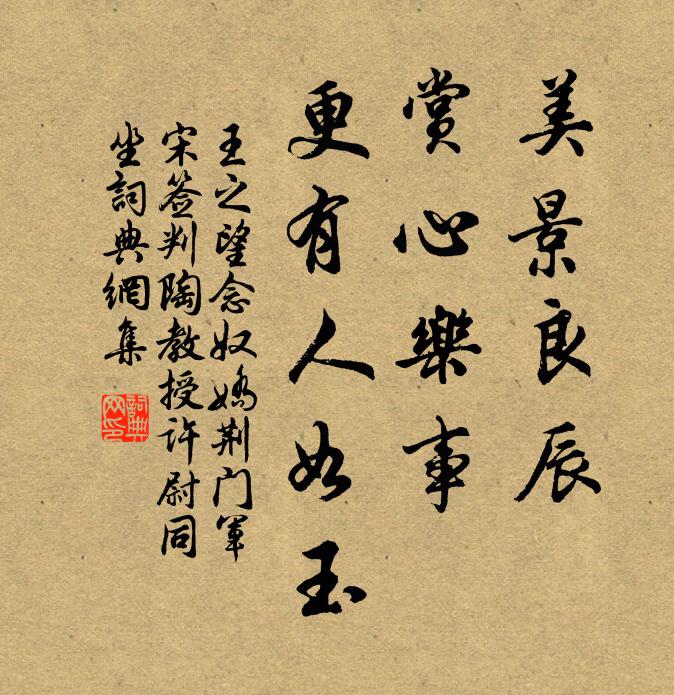 美景良辰
賞心樂事
更有人如玉
王之望念奴嬌荆门軍
宋签判陶教授许尉同
坐詞典網集
詞典
网印